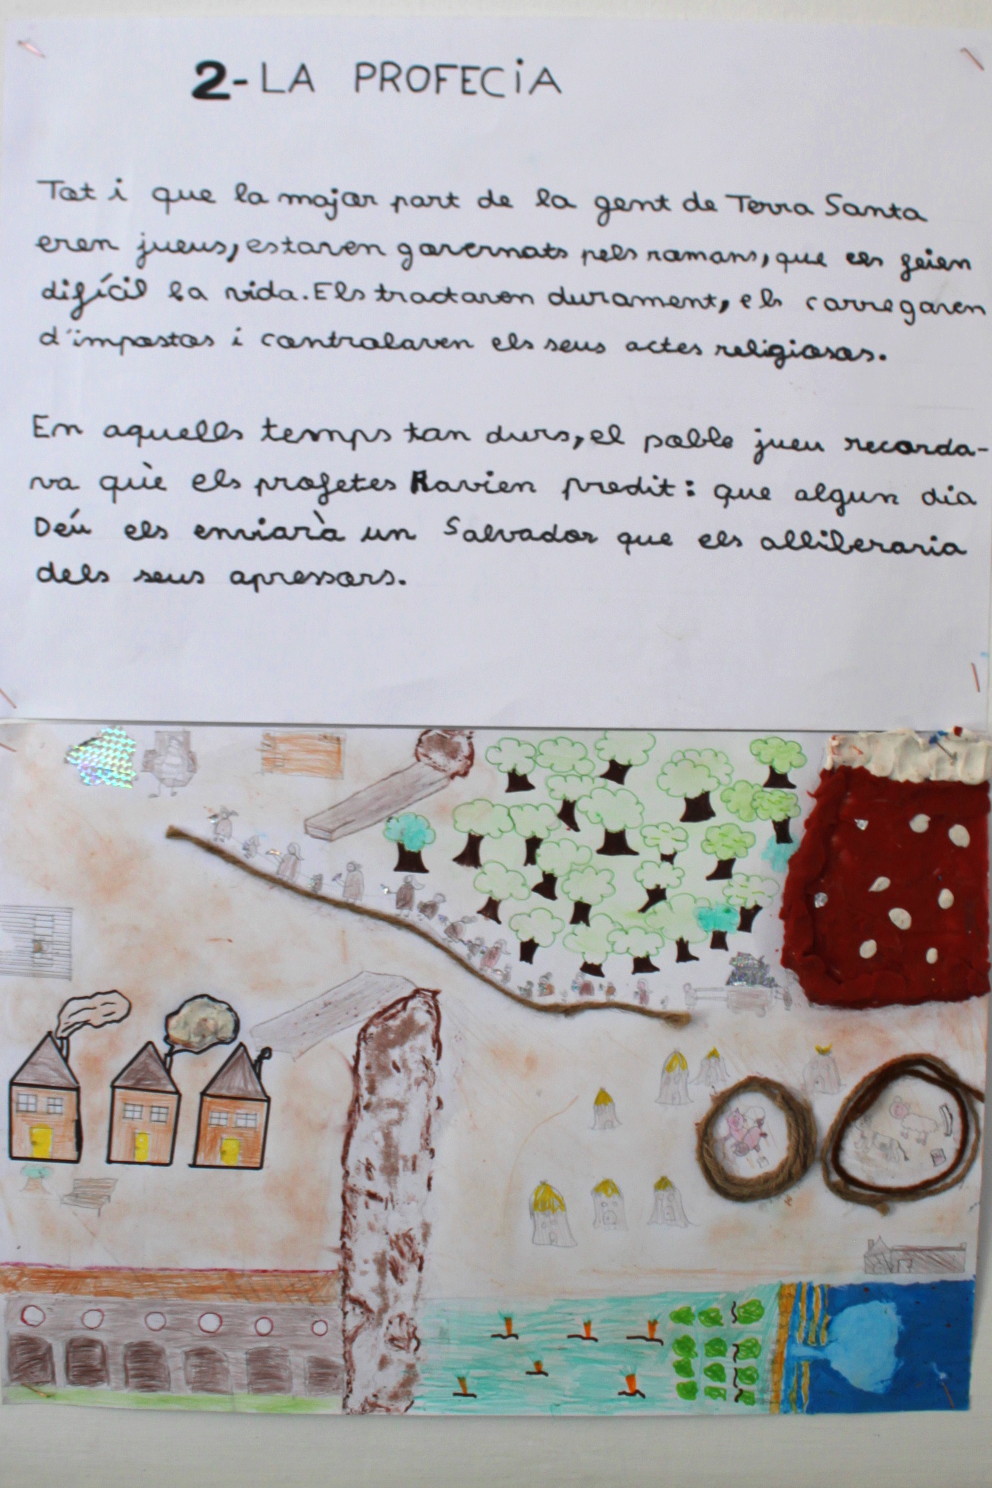 2-LA PROFECiA
Tot i que la major part de la gent de Terra Santa
eren jueus, estaven governats pels romans, que els feien
difícil la vida. Els tractaven durament, els carregaven
d'impostos i controlaven els seus actes religiosos.
En aquells temps tan durs, el poble jueu recorda-
va què els profetes Havien predit: que algun dia
Déu els enviarà un Salvador que els alliberaria
dels seus opressors.